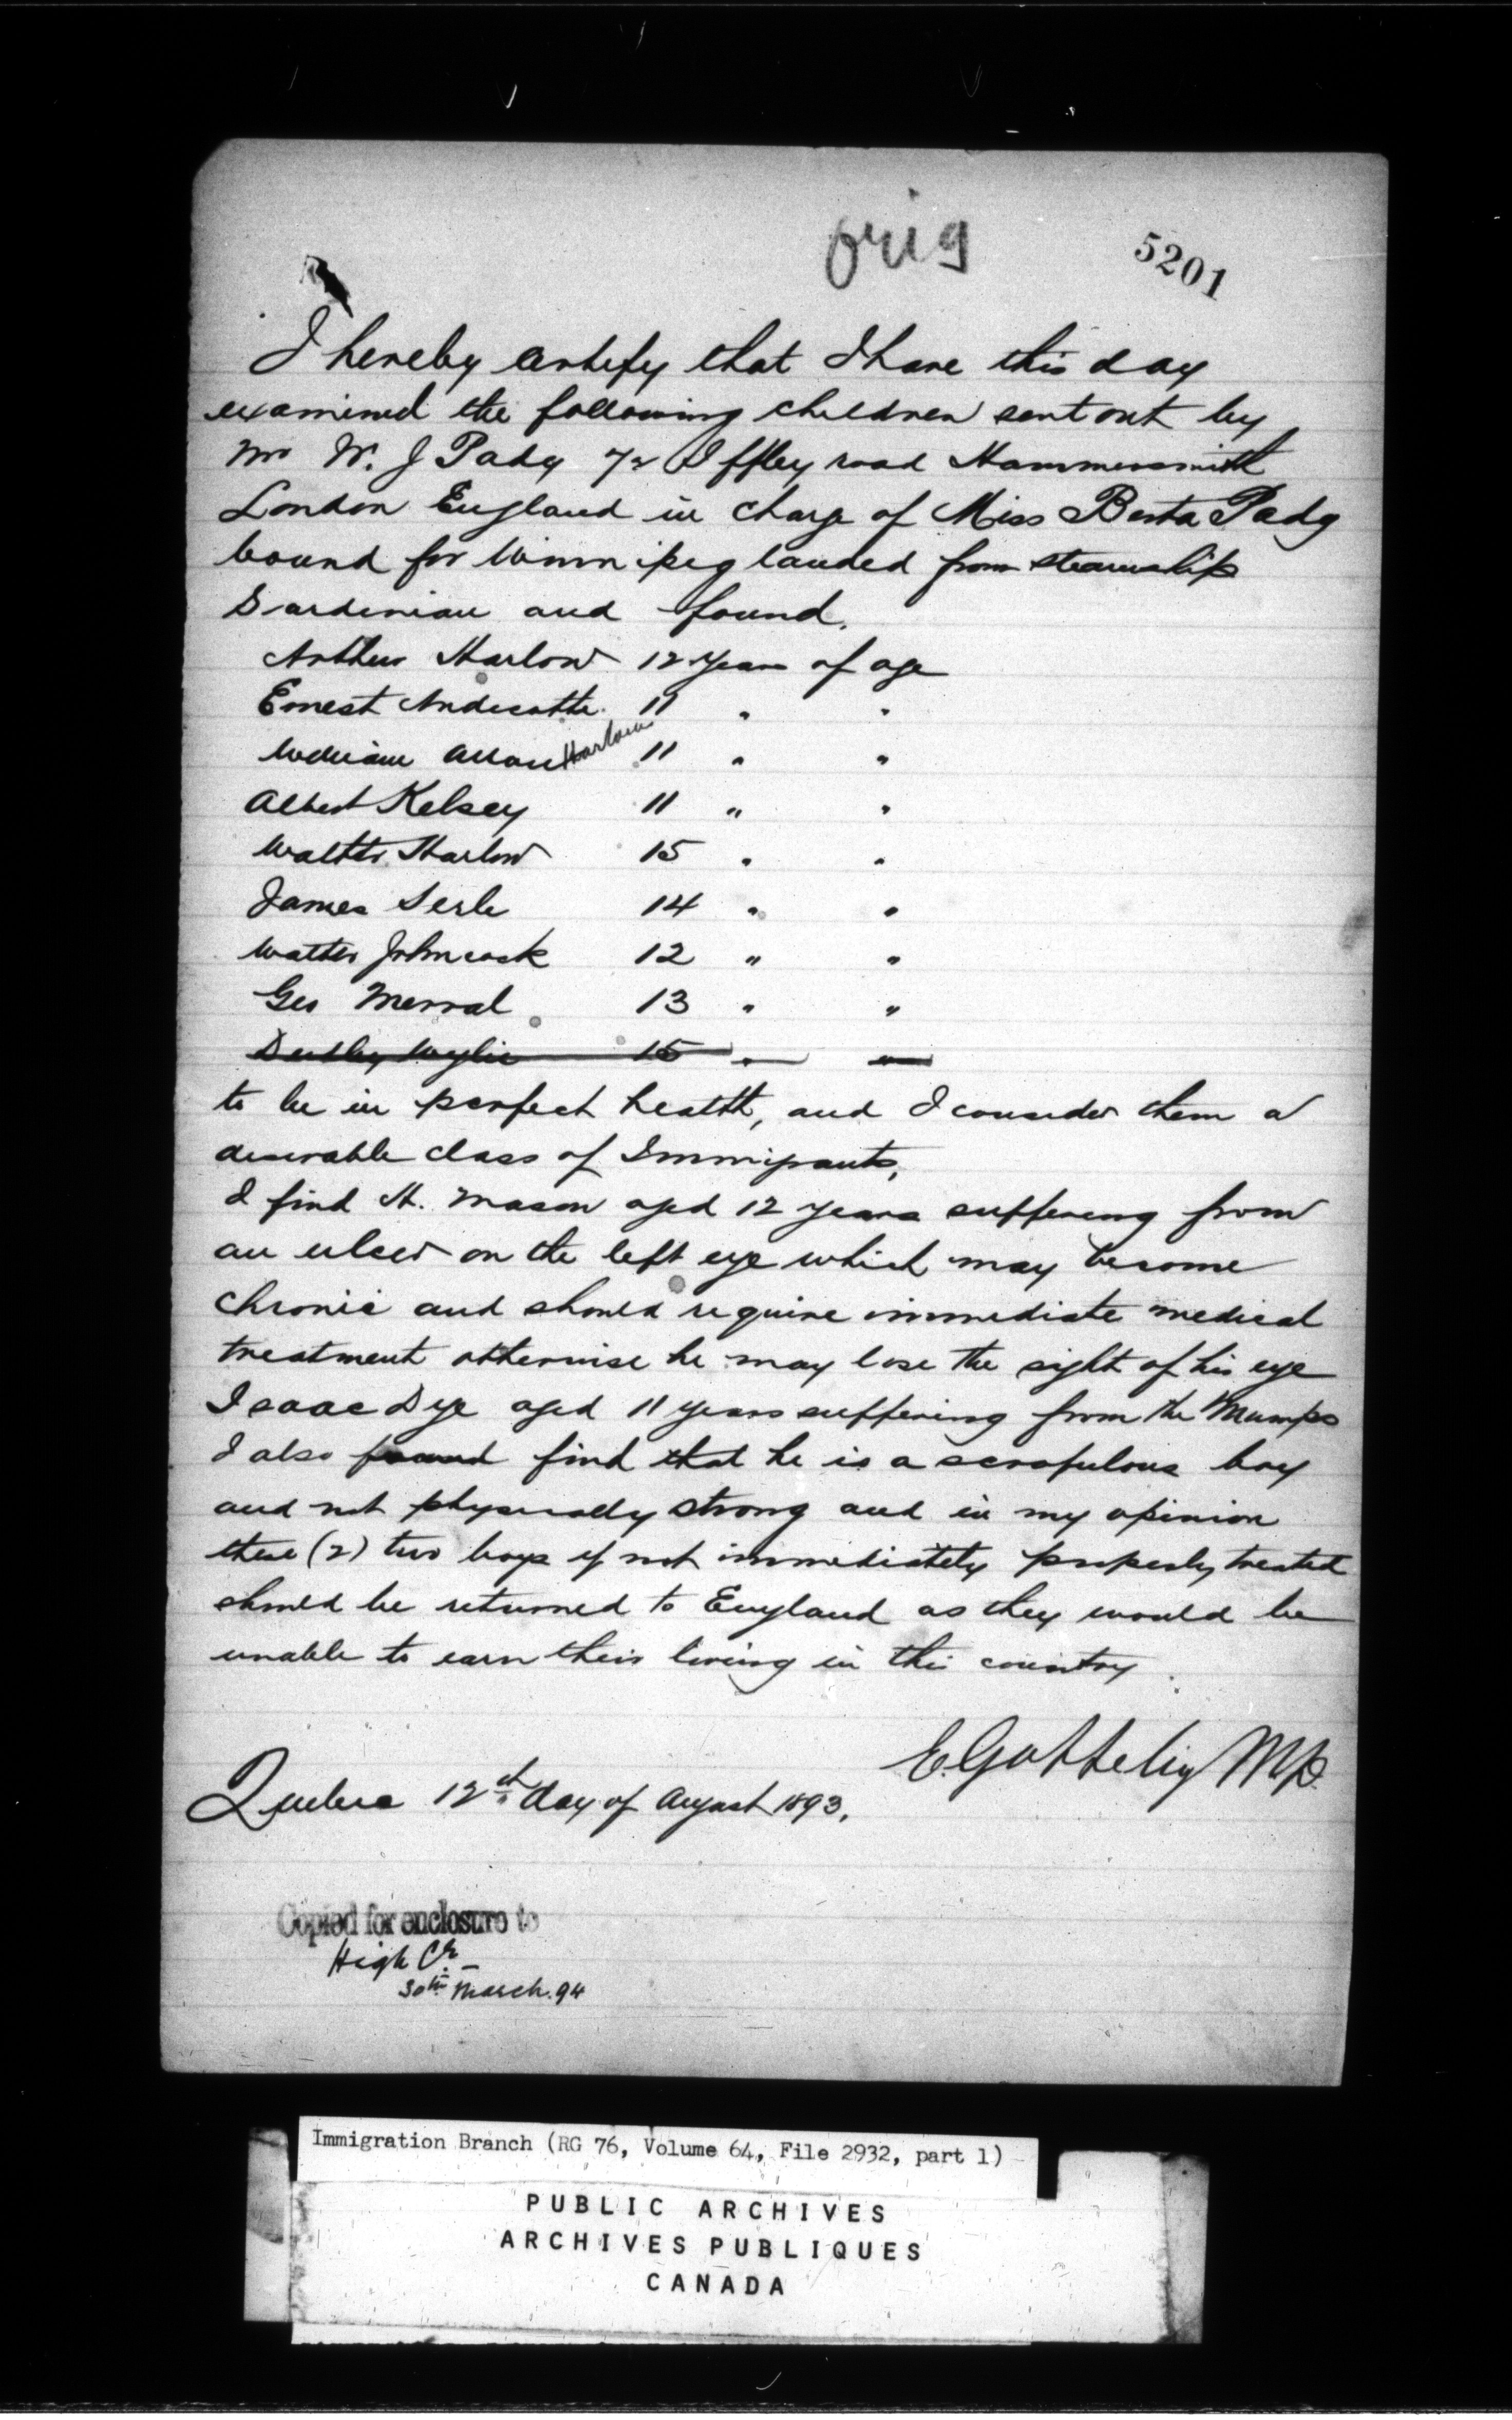 orig
5201
I hereby certify that I have this day
examined the following children sent out by
Mr W. J Pady 72 Iffley road Hammersmith
London England in charge of Miss Berta Pady
bound for Winnipeg landed from steamship
Sardinian and found.
Arthur Harlow 12 years of age
Ernest Andicotte. 11 " "
William Allan Harlow 11 " "
Albert Kelsey 11 " "
Walter Harlow 15 " "
James Serle 14 " "
Walter Johncock 12 " "
Geo Merral 13 " "
Dudley Wylie 15 " "
to be in perfect health, and I consider them a
desirable class of Immigrants,
I find H. Mason aged 12 years suffering from
an ulcer on the left eye which may become
chronic and should require immediate medical
treatment otherwise he may lose the sight of his eye
Isaac Dye aged 11 years suffering from the Mumps
I also found find that he is a scrofulous boy
and not physically strong and in my opinion
these (2) two boys if not immediately properly treated
should be returned to England as they would be
unable to earn their living in this country.
Quebec 12th day of August 1893.
M.D.
Copied for enclosure to
High Cr.
30th March. 94
Immigration Branch (RG 76, Volume 64, File 2932, part 1)
PUBLIC ARCHIVES
ARCHIVES PUBLIQUES
CANADA